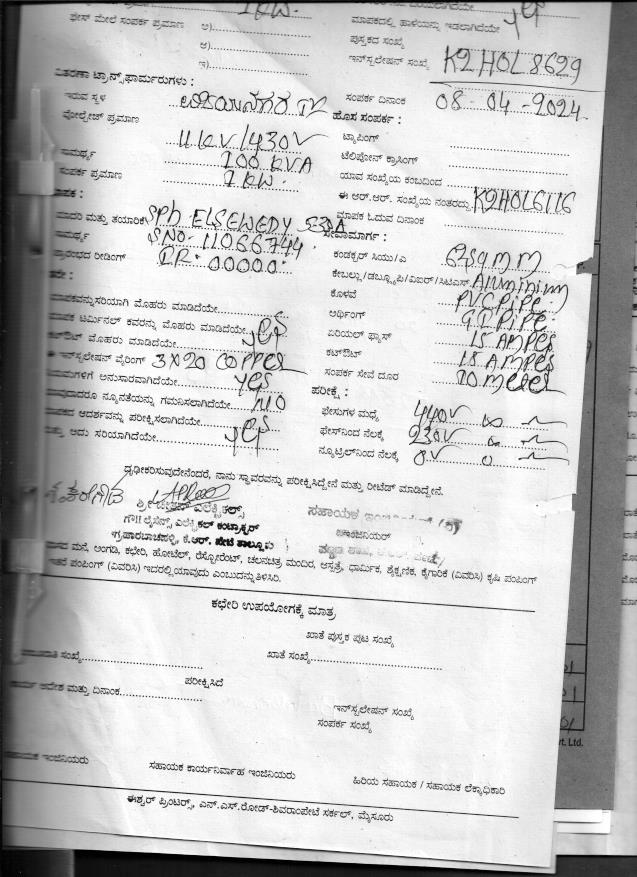 1 KW.
ಫೇಸ್ ಮೇಲೆ ಸಂಪರ್ಕ ಪ್ರಮಾಣ ಅ)
ಆ)
ಇ)
ಮಾಪಕದಲ್ಲಿ ಹಾಳೆಯನ್ನು ಇಡಲಾಗಿದೆಯೇ yes
ಪುಸ್ತಕದ ಸಂಖ್ಯೆ
ಇನ್‌ಸ್ಟಲೇಷನ್ ಸಂಖ್ಯೆ K2HOL8629
ವಿತರಣಾ ಟ್ರಾನ್ಸ್‌ಫಾರ್ಮರುಗಳು :
ಇರುವ ಸ್ಥಳ ವಿಜಯನಗರ
ವೋಲ್ಟೇಜ್ ಪ್ರಮಾಣ 11 KV/430V
ಸಾಮರ್ಥ್ಯ 100 KVA
ಸಂಪರ್ಕ ಪ್ರಮಾಣ 1 KW.
ಸಂಪರ್ಕ ದಿನಾಂಕ 08-04-2024.
ಹೊಸ ಸಂಪರ್ಕ :
ಟ್ಯಾಪಿಂಗ್
ಟೆಲಿಫೋನ್ ಕ್ರಾಸಿಂಗ್
ಯಾವ ಸಂಖ್ಯೆಯ ಕಂಬದಿಂದ
ಈ ಆರ್.ಆರ್. ಸಂಖ್ಯೆಯ ನಂತರದ್ದು K2HOL6116
ಮಾಪಕ ಓದುವ ದಿನಾಂಕ
ಮಾಪಕ :
ಮಾದರಿ ಮತ್ತು ತಯಾರಿಕೆ SPH ELSEWEDY 5-30A
ಸಾಮರ್ಥ್ಯ SNO-11066744
ಪ್ರಾರಂಭದ ರೀಡಿಂಗ್ IR-00000
ಸೇವಾಮಾರ್ಗ :
ಕಂಡಕ್ಟರ್ ಸಿಯು/ಎ
ಕೇಬಲ್ಲು /ಡಬ್ಲ್ಯೂಪಿ/ವಿಐಆರ್/ಸಿಟಿಎಸ್ Aluminium
ಕೊಳವೆ PVC PiPe
ಅರ್ಥಿಂಗ್ GI PiPe
ಏರಿಯಲ್ ಫ್ಯೂಸ್ 15 AMPes
ಕಟ್‌ಔಟ್ 15 AMPes
ಸಂಪರ್ಕ ಸೇವೆ ದೂರ 10 meter
ಮಾಪಕವನ್ನು ಸರಿಯಾಗಿ ಮೊಹರು ಮಾಡಿದೆಯೇ
ಮಾಪಕ ಟರ್ಮಿನಲ್ ಕವರನ್ನು ಮೊಹರು ಮಾಡಿದೆಯೇ yes
ಕಟ್‌ಔಟ್ ಮೊಹರು ಮಾಡಿದೆಯೇ
ಇನ್‌ಸ್ಟಲೇಷನ್ ವೈರಿಂಗ್ 3X20 COPPER
ನಿಯಮಗಳಿಗೆ ಅನುಸಾರವಾಗಿದೆಯೇ yes
ಯಾವುದಾದರೂ ನ್ಯೂನತೆಯನ್ನು ಗಮನಿಸಲಾಗಿದೆಯೇ NO
ಮಾಪಕದ ಆದರ್ಶವನ್ನು ಪರೀಕ್ಷಿಸಲಾಗಿದೆಯೇ
ಮತ್ತು ಅದು ಸರಿಯಾಗಿದೆಯೇ yes
ಪರೀಕ್ಷೆ :
ಫೇಸುಗಳ ಮಧ್ಯೆ 440V
ಫೇಸ್‌ನಿಂದ ನೆಲಕ್ಕೆ 230V
ನ್ಯೂಟ್ರಲ್‌ನಿಂದ ನೆಲಕ್ಕೆ 0V
ದೃಢೀಕರಿಸುವುದೇನೆಂದರೆ, ನಾನು ಸ್ಥಾವರವನ್ನು ಪರೀಕ್ಷಿಸಿದ್ದೇನೆ ಮತ್ತು ರೀಟೆಡ್ ಮಾಡಿದ್ದೇನೆ.
ಎಲೆಕ್ಟ್ರಿಕಲ್ಸ್
ಗೌ‖ ಲೈಸೆನ್ಸ್ ಎಲೆಕ್ಟ್ರಿಕಲ್ ಕಂಟ್ರಾಕ್ಟರ್
ಅಗ್ರಹಾರಬಾಚಹಳ್ಳಿ, ಕೆ.ಆರ್. ಪೇಟೆ ತಾಲ್ಲೂಕು
ಸಹಾಯಕ
ಇಂಜಿನಿಯರ್
ವಾಸದ ಮನೆ, ಅಂಗಡಿ, ಕಛೇರಿ, ಹೋಟೆಲ್, ರೆಸ್ಟೋರೆಂಟ್, ಚಲನಚಿತ್ರ ಮಂದಿರ, ಆಸ್ಪತ್ರೆ, ಧಾರ್ಮಿಕ, ಶೈಕ್ಷಣಿಕ, ಕೈಗಾರಿಕೆ (ವಿವರಿಸಿ) ಕೃಷಿ ಪಂಪಿಂಗ್
ಇತರೆ ಪಂಪಿಂಗ್ (ವಿವರಿಸಿ) ಇದರಲ್ಲಿ ಯಾವುದು ಎಂಬುದನ್ನು ತಿಳಿಸಿರಿ.
ಕಛೇರಿ ಉಪಯೋಗಕ್ಕೆ ಮಾತ್ರ
ಖಾತೆ ಪುಸ್ತಕ ಪುಟ ಸಂಖ್ಯೆ
ಖಾತೆ ಸಂಖ್ಯೆ
ಪರೀಕ್ಷಿಸಿದೆ
ಕಾರ್ಯ ಆದೇಶ ಮತ್ತು ದಿನಾಂಕ
ಇನ್‌ಸ್ಟಲೇಷನ್ ಸಂಖ್ಯೆ
ಸಂಪರ್ಕ ಸಂಖ್ಯೆ
vt. Ltd.
ಸಹಾಯಕ ಇಂಜಿನಿಯರು
ಸಹಾಯಕ ಕಾರ್ಯನಿರ್ವಾಹ ಇಂಜಿನಿಯರು
ಹಿರಿಯ ಸಹಾಯಕ / ಸಹಾಯಕ ಲೆಕ್ಕಾಧಿಕಾರಿ
ಈಶ್ವರ್ ಪ್ರಿಂಟರ್ಸ್, ಎನ್.ಎಸ್.ರೋಡ್-ಶಿವರಾಂಪೇಟೆ ಸರ್ಕಲ್, ಮೈಸೂರು